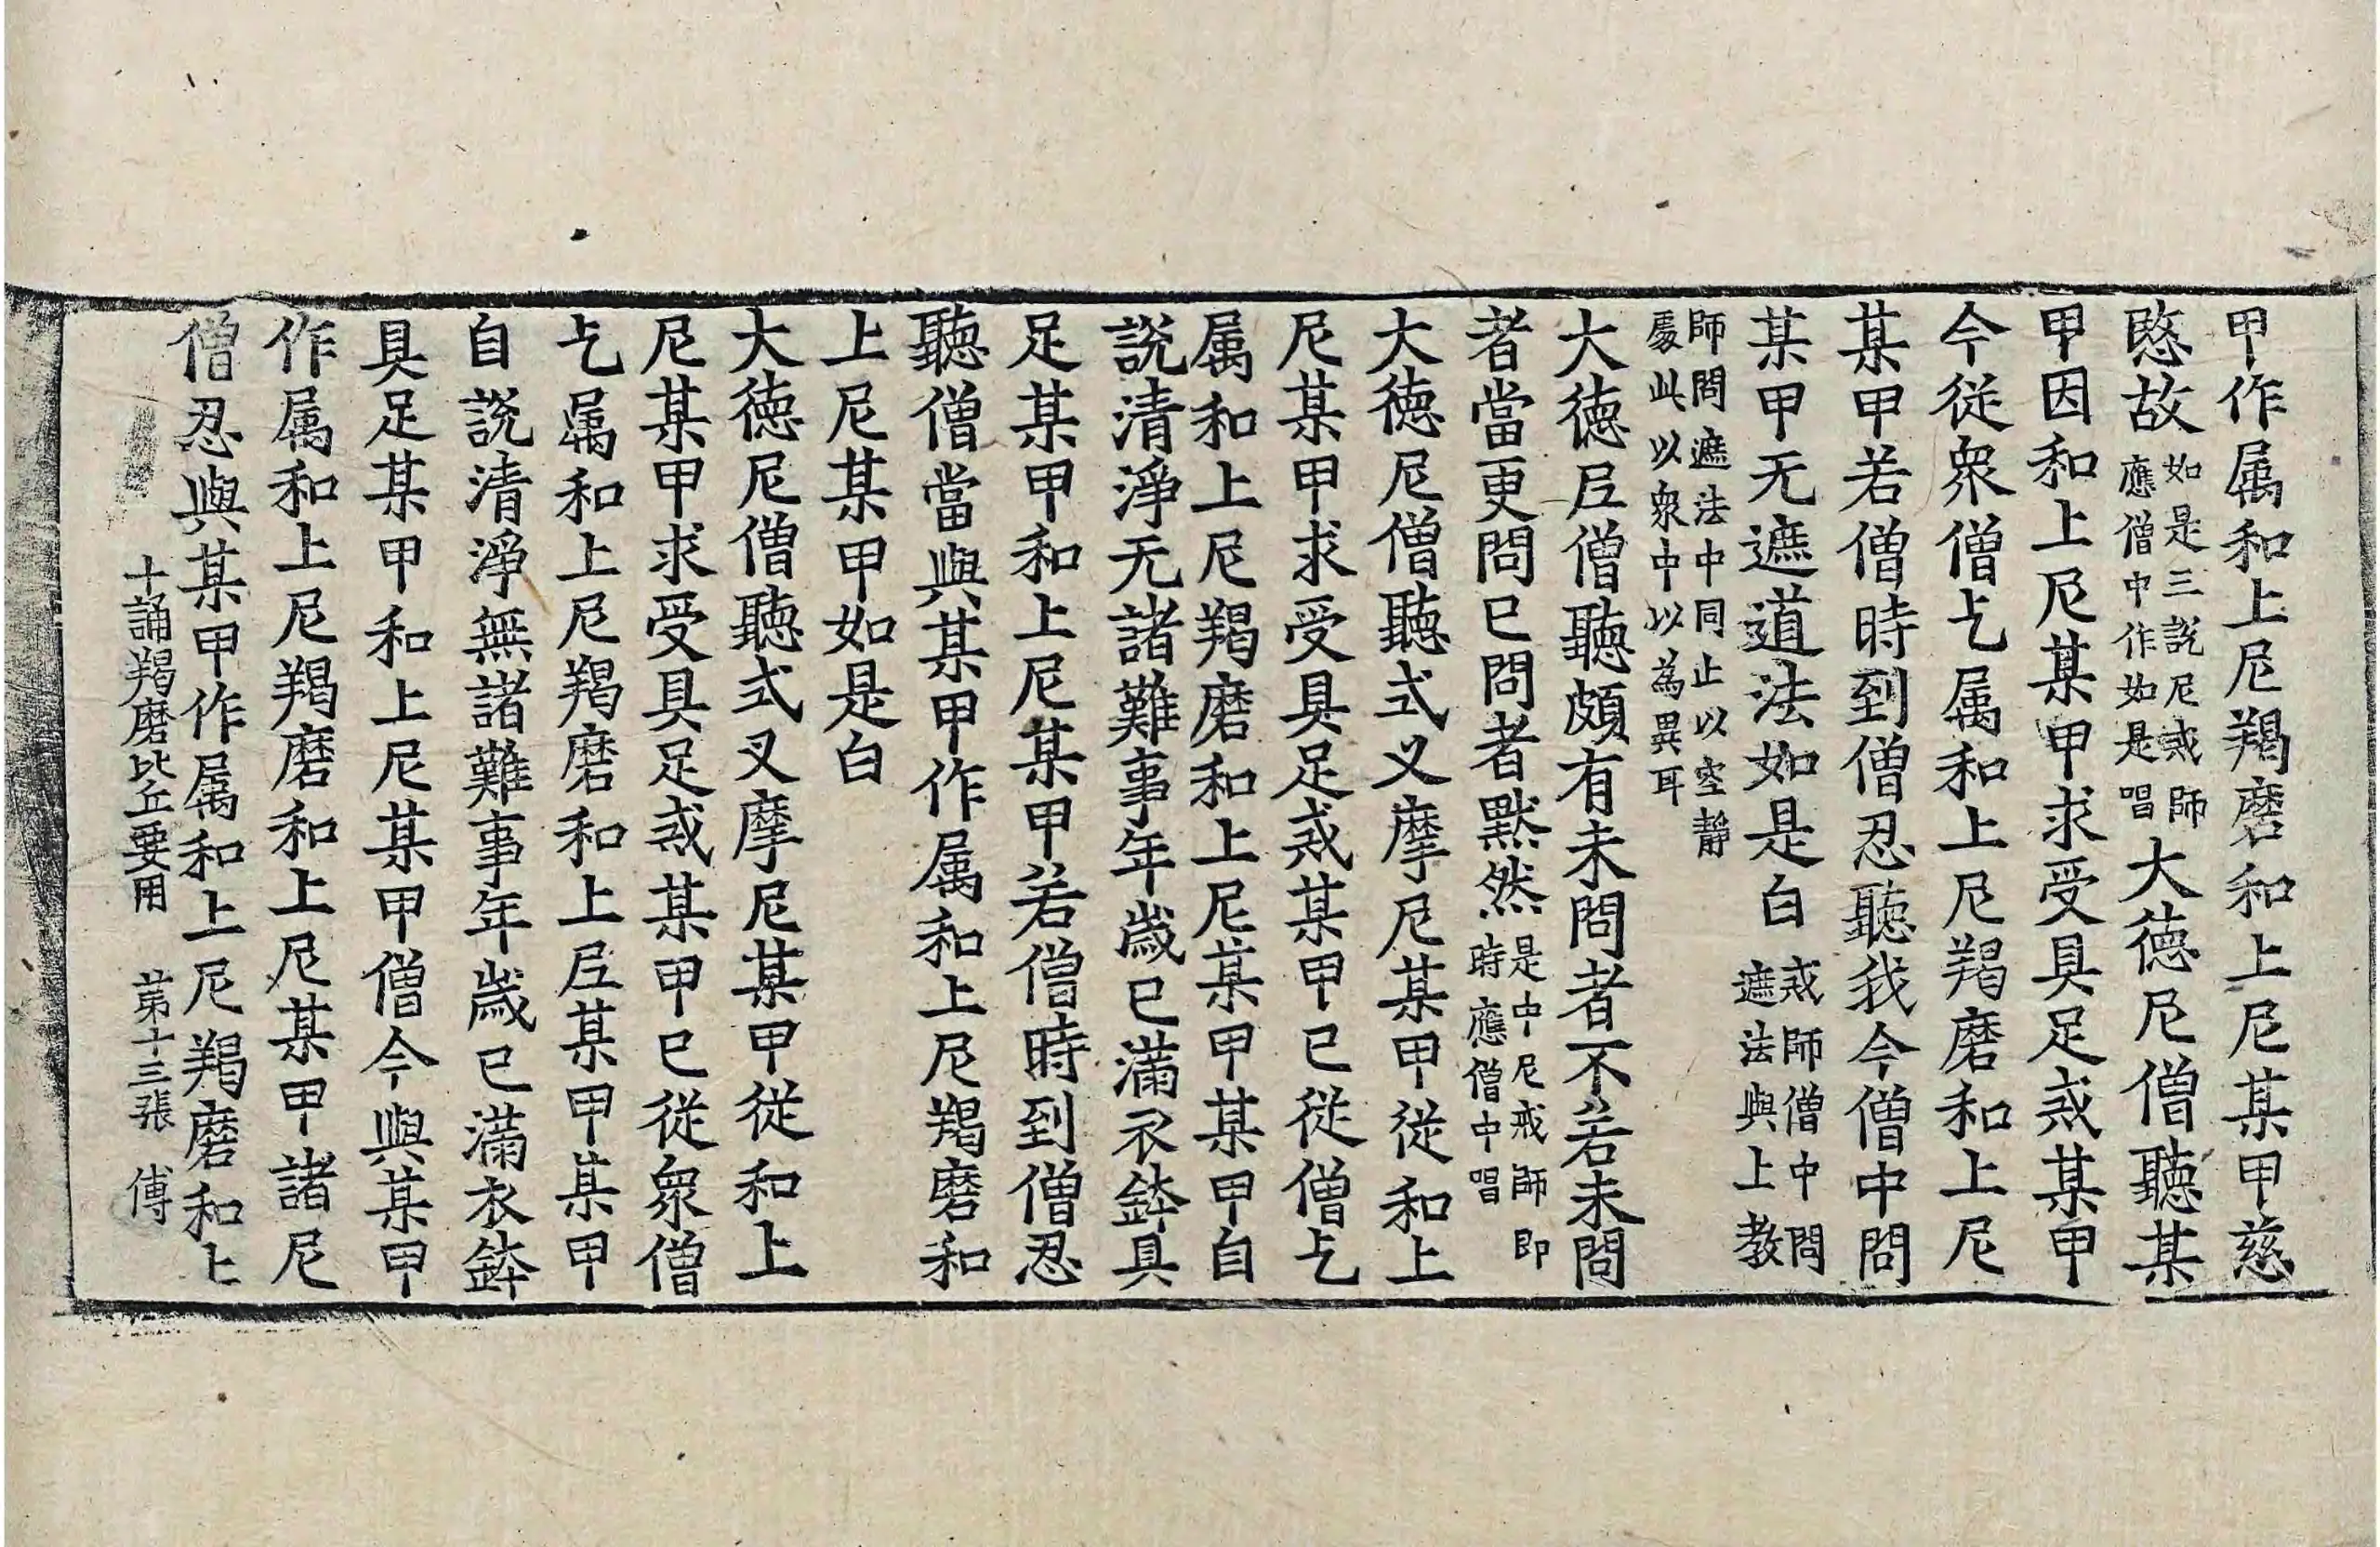 甲作属和上尼羯磨和上尼某甲慈
愍故
如是三說尼戒師
應僧中作如是唱
大德尼僧聽某
甲因和上尼某甲求受具足戒某甲
今從衆僧乞属和上尼羯磨和上尼
某甲若僧時到僧忍聽我今僧中問
某甲无遮道法如是白
戒師僧中問
遮法與上教
師問遮法中同止以空静
處此以衆中以為異耳
大德尼僧聽頗有未問者不若未問
者當更問已問者默然
是中尼戒師即
時應僧中唱
大德尼僧聽式叉摩尼某甲從和上
尼某甲求受具足戒某甲已從僧乞
属和上尼羯磨和上尼某甲某甲自
說清淨无諸難事年歲已滿衣鉢具
足某甲和上尼某甲若僧時到僧忍
聽僧當與某甲作属和上尼羯磨和
上尼某甲如是白
大德尼僧聽式叉摩尼某甲從和上
尼某甲求受具足戒某甲已從衆僧
乞属和上尼羯磨和上尼某甲某甲
自說清淨無諸難事年歲已滿衣鉢
具足某甲和上尼某甲僧今與某甲
作属和上尼羯磨和上尼某甲諸尼
僧忍與某甲作属和上尼羯磨和上
十誦羯磨比丘要用 苐十三張 傅